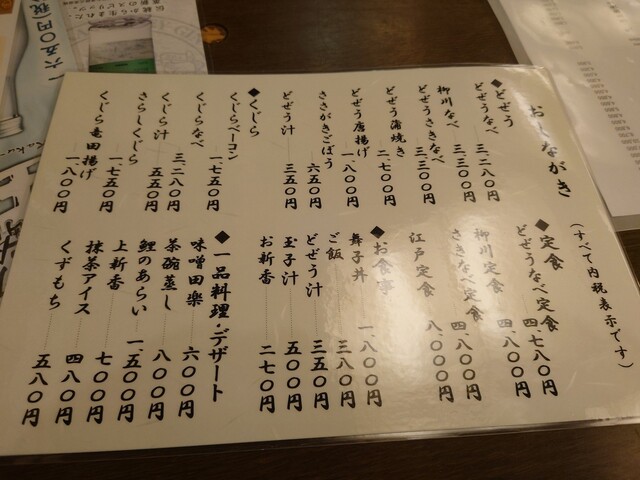 おしながき
(すべて内税表示です)
◆どぜう
どぜうなべ 三、二八〇円
柳川なべ 三、三〇〇円
どぜうさきなべ 三、三〇〇円
どぜう蒲焼き 二、七〇〇円
どぜう唐揚げ 一、八〇〇円
ささがきごぼう 六五〇円
どぜう汁 三五〇円
◆くじら
くじらベーコン 一、七五〇円
くじらなべ 三、二八〇円
くじら汁 五五〇円
さらしくじら 一、七五〇円
くじら竜田揚げ 一、八〇〇円
◆定食
どぜうなべ定食 四、七八〇円
柳川定食 四、八〇〇円
さきなべ定食 四、八〇〇円
江戸定食 八、〇〇〇円
◆お食事
舞子丼 一、八〇〇円
ご飯 三八〇円
どぜう汁 三五〇円
玉子汁 五〇〇円
お新香 二七〇円
◆一品料理・デザート
味噌田楽 六〇〇円
茶碗蒸し 八〇〇円
鯉のあらい 一、五〇〇円
上新香 七〇〇円
抹茶アイス 四八〇円
くずもち 五八〇円
一六五〇円(税
伝統から生まれた